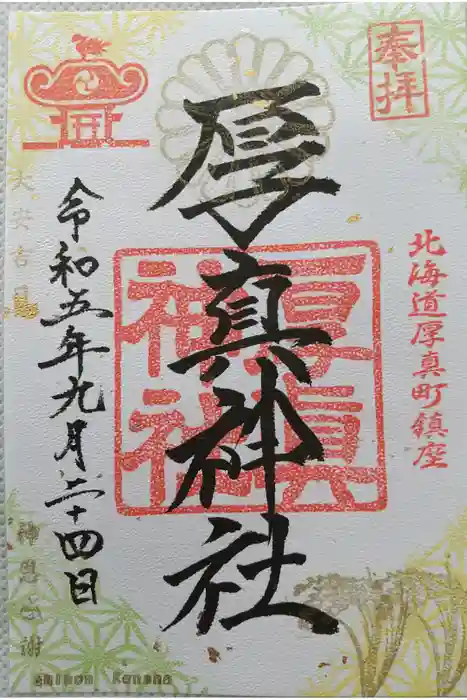 奉拝
北海道厚真町鎮座
厚真神社
厚真
神社
大安吉日
令和五年九月二十四日
神恩感謝